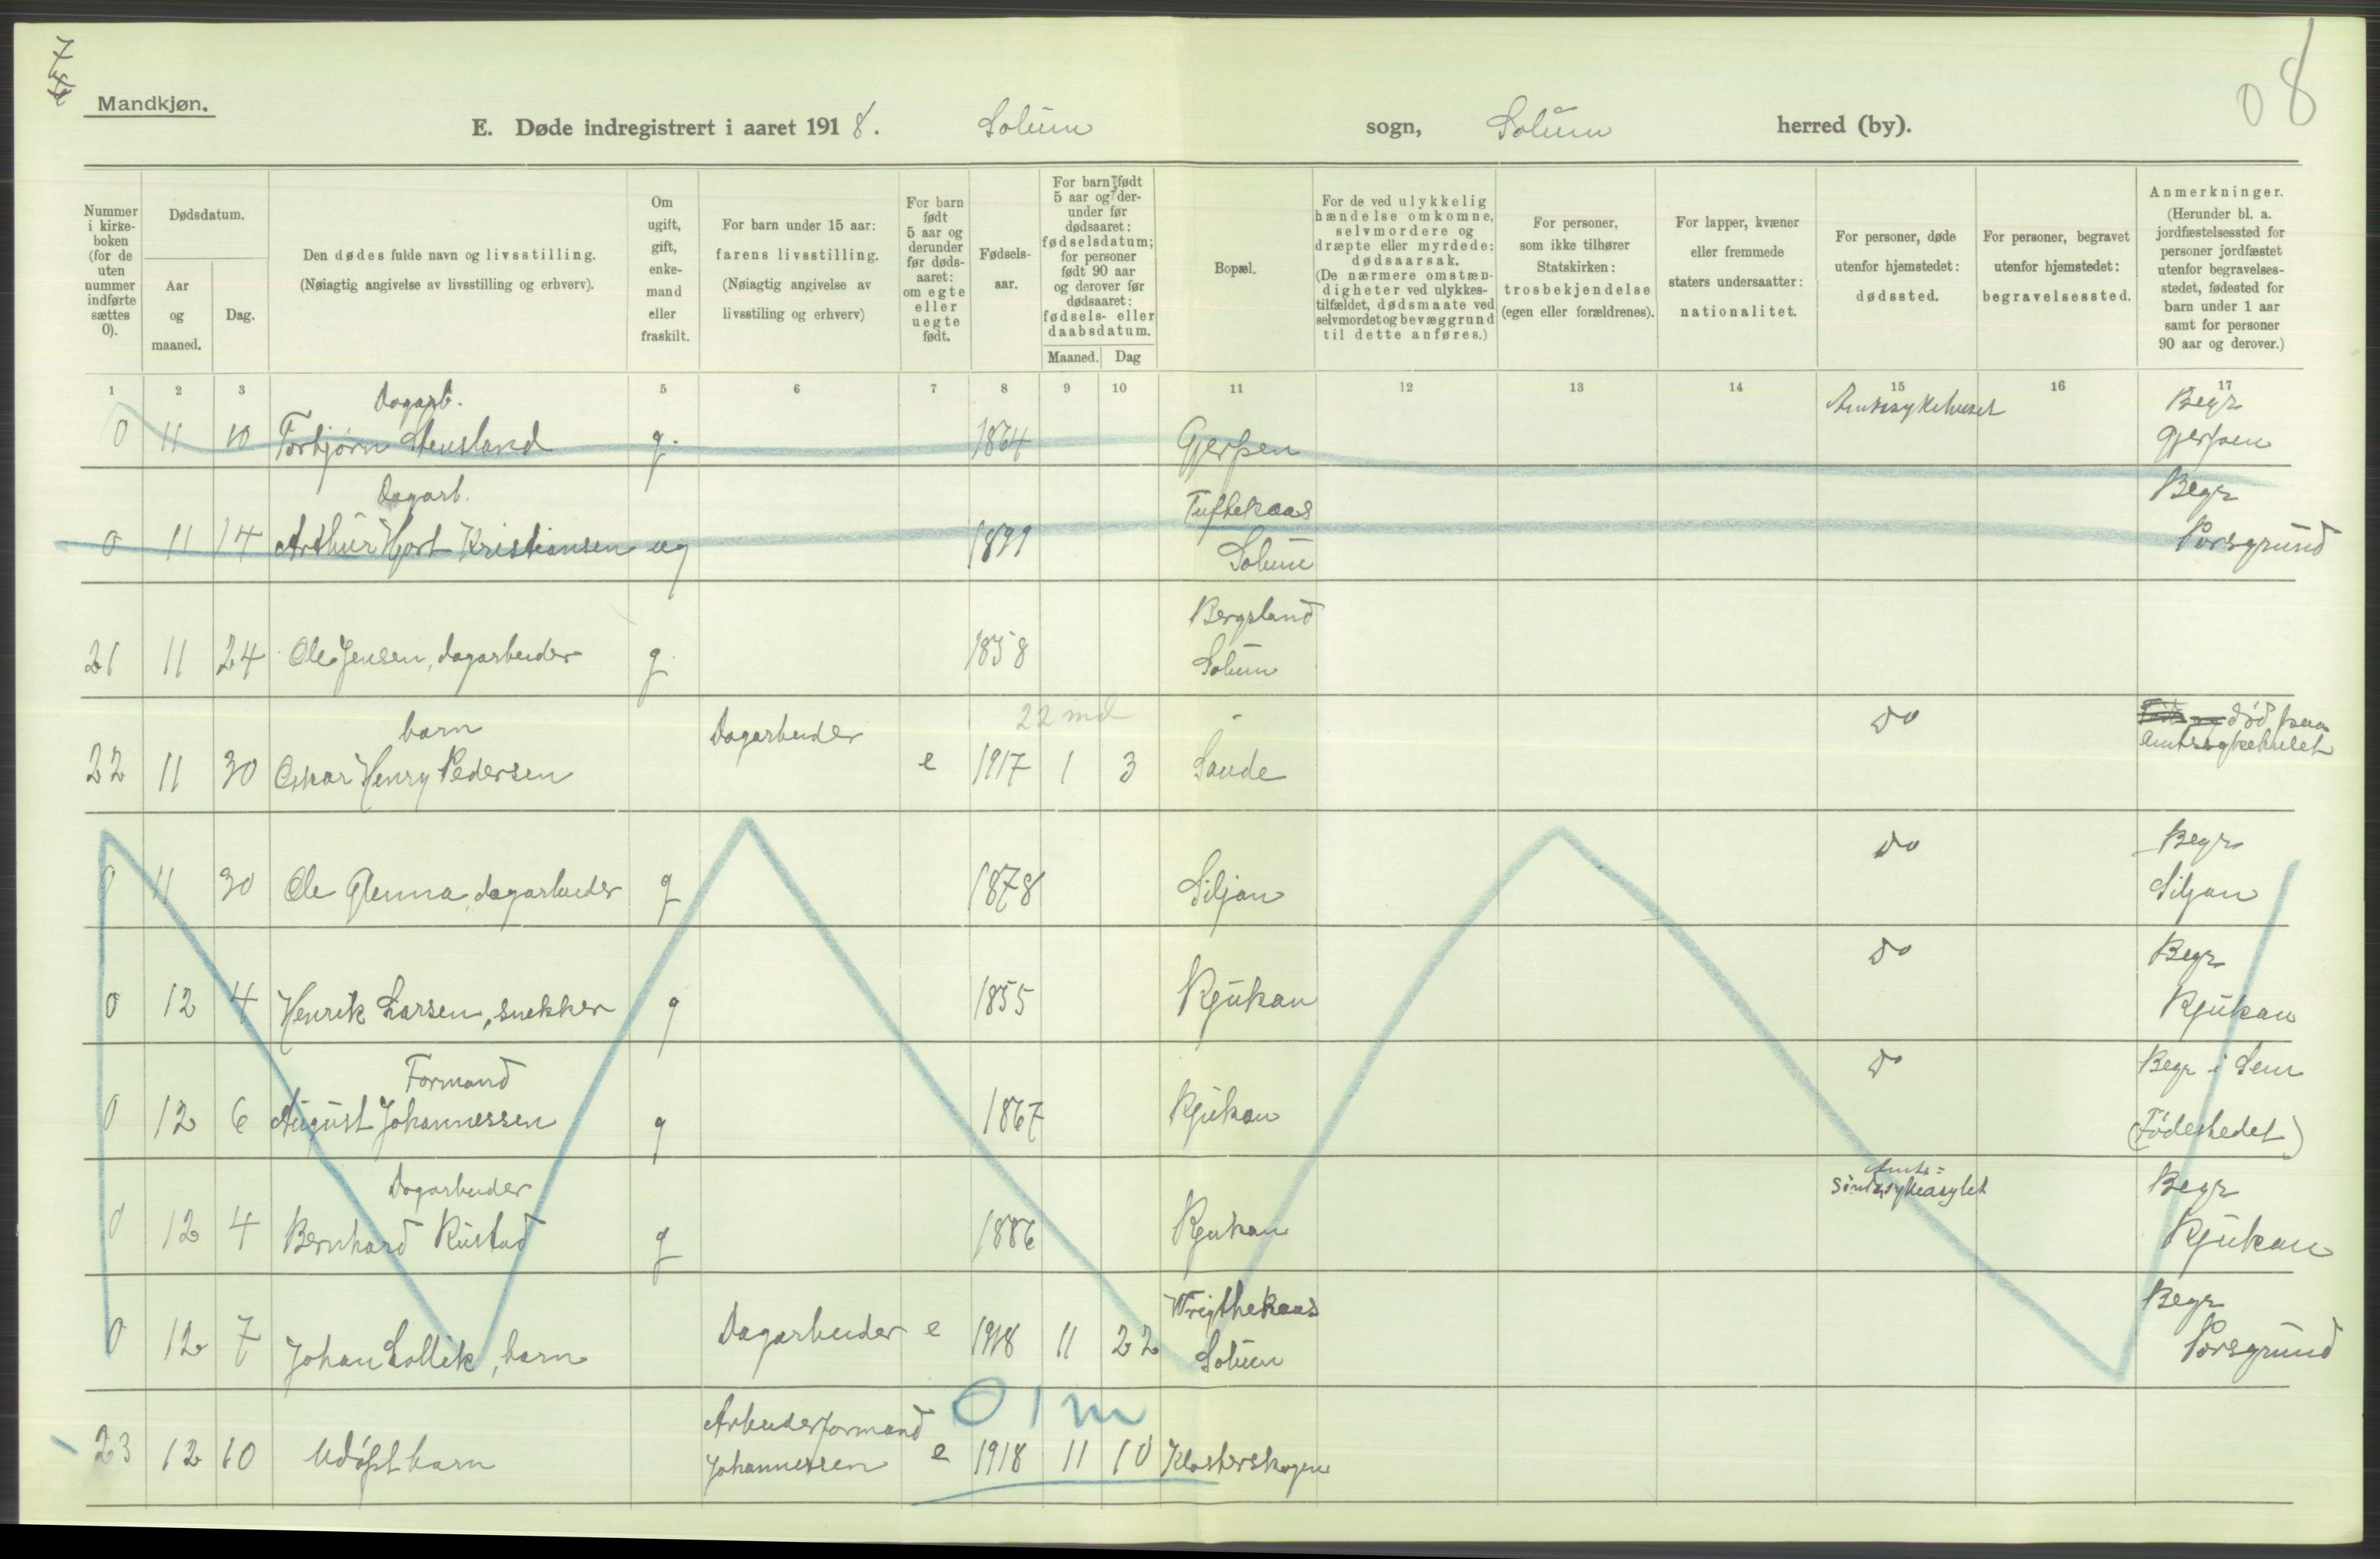 7
08
Mandkjøn.
E. Døde indregistrert i aaret 1918. Solum sogn, Solum herred (by).
Nummer i kirkeboken (for de uten nummer indførte sættes 0).
Dødsdatum.
Aar og maaned.
Dag.
Den dødes fulde navn og livsstilling.
(Nøiagtig angivelse av livsstilling og erhverv).
Om ugift, gift, enkemand eller fraskilt.
For barn under 15 aar:
farens livsstilling.
(Nøiagtig angivelse av livsstiling og erhverv)
For barn født 5 aar og derunder før dødsaaret: om egte eller uegte født.
Fødselsaar.
For barn født 5 aar og derunder før dødsaaret: fødselsdatum; for personer født 90 aar og derover før dødsaaret: fødsels- eller daabsdatum.
Maaned. Dag
Bopæl.
For de ved ulykkelig hændelse omkomne, selvmordere og dræpte eller myrdede: dødsaarsak.
(De nærmere omstændigheter ved ulykkestilfældet, dødsmaate ved selvmordet og bevæggrund til dette anføres.)
For personer, som ikke tilhører Statskirken: trosbekjendelse (egen eller forældrenes).
For lapper, kvæner eller fremmede staters undersaatter: nationalitet.
For personer, døde utenfor hjemstedet: dødssted.
For personer, begravet utenfor hjemstedet: begravelsessted.
Anmerkninger.
(Herunder bl. a. jordfæstelsessted for personer jordfæstet utenfor begravelsesstedet, fødested for barn under 1 aar samt for personer 90 aar og derover.)
1 2 3 5 6 7 8 9 10 11 12 13 14 15 16 17
Dagarb. Amtssykehuset Begr
0 11 10 Torbjørn Stensland g. 1864 Gjerpen Gjerpen
Dagarb. Tuftekaas Begr
0 11 14 Arthur Hjort Kristiansen ug 1899 Solum Porsgrund
Bergsland
21 11 24 Ole Jensen, dagarbeider g. 1858 Solum
barn Dagarbeider 22 md do død paa
22 11 30 Oskar Henry Pedersen e 1917 1 3 Saude Amtssykehuset
do Begr
0 11 30 Ole Glenna, dagarbeider g 1878 Siljan Siljan
do Begr
0 12 4 Henrik Larsen, snekker g 1855 Rjukan Rjukan
Formand do Begr i Sem
0 12 6 August Johannessen g 1867 Rjukan (Fødestedet)
Dagarbeider Amts= Begr
sindssykeasylet
0 12 4 Bernhard Rustad g 1886 Rjukan Rjukan
Wrigthekaas Begr
0 12 7 Johan Lollik, barn Dagarbeider e 1918 11 22 Solum Porsgrund
Arbeiderformand 0 1 m
23 12 10 Udøpt barn Johannessen e 1918 11 10 Klosterskogen